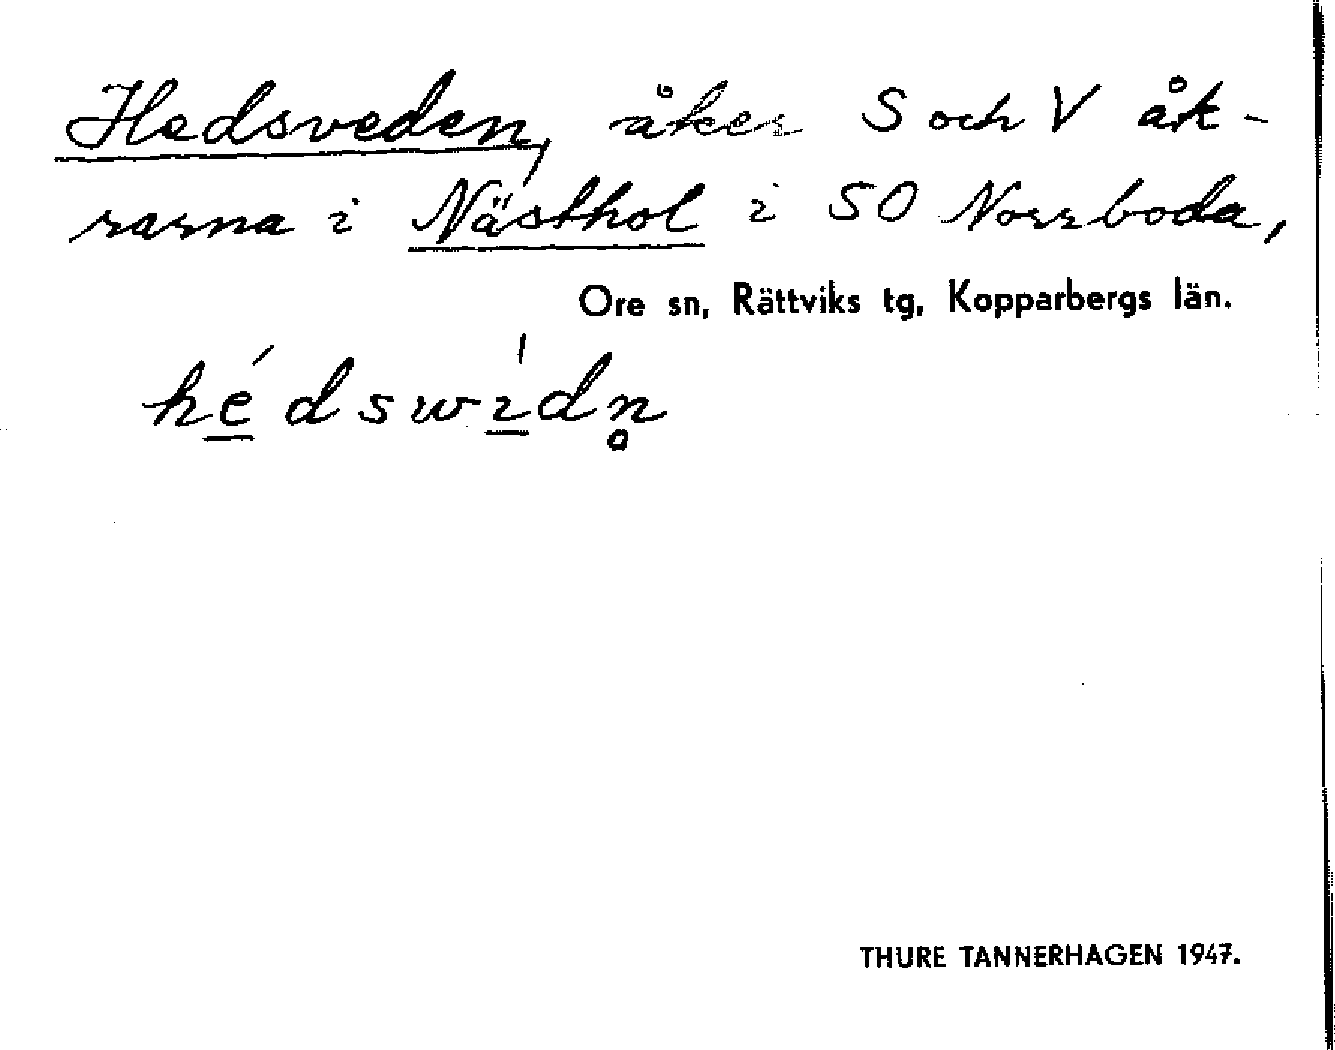 Hedsveden, åker S och V åk-
rarna i Nästhol i SO Norrboda,
Ore sn, Rättviks tg, Kopparbergs län.
hé̱dswı̱̍dn̥
THURE TANNERHAGEN 1947.